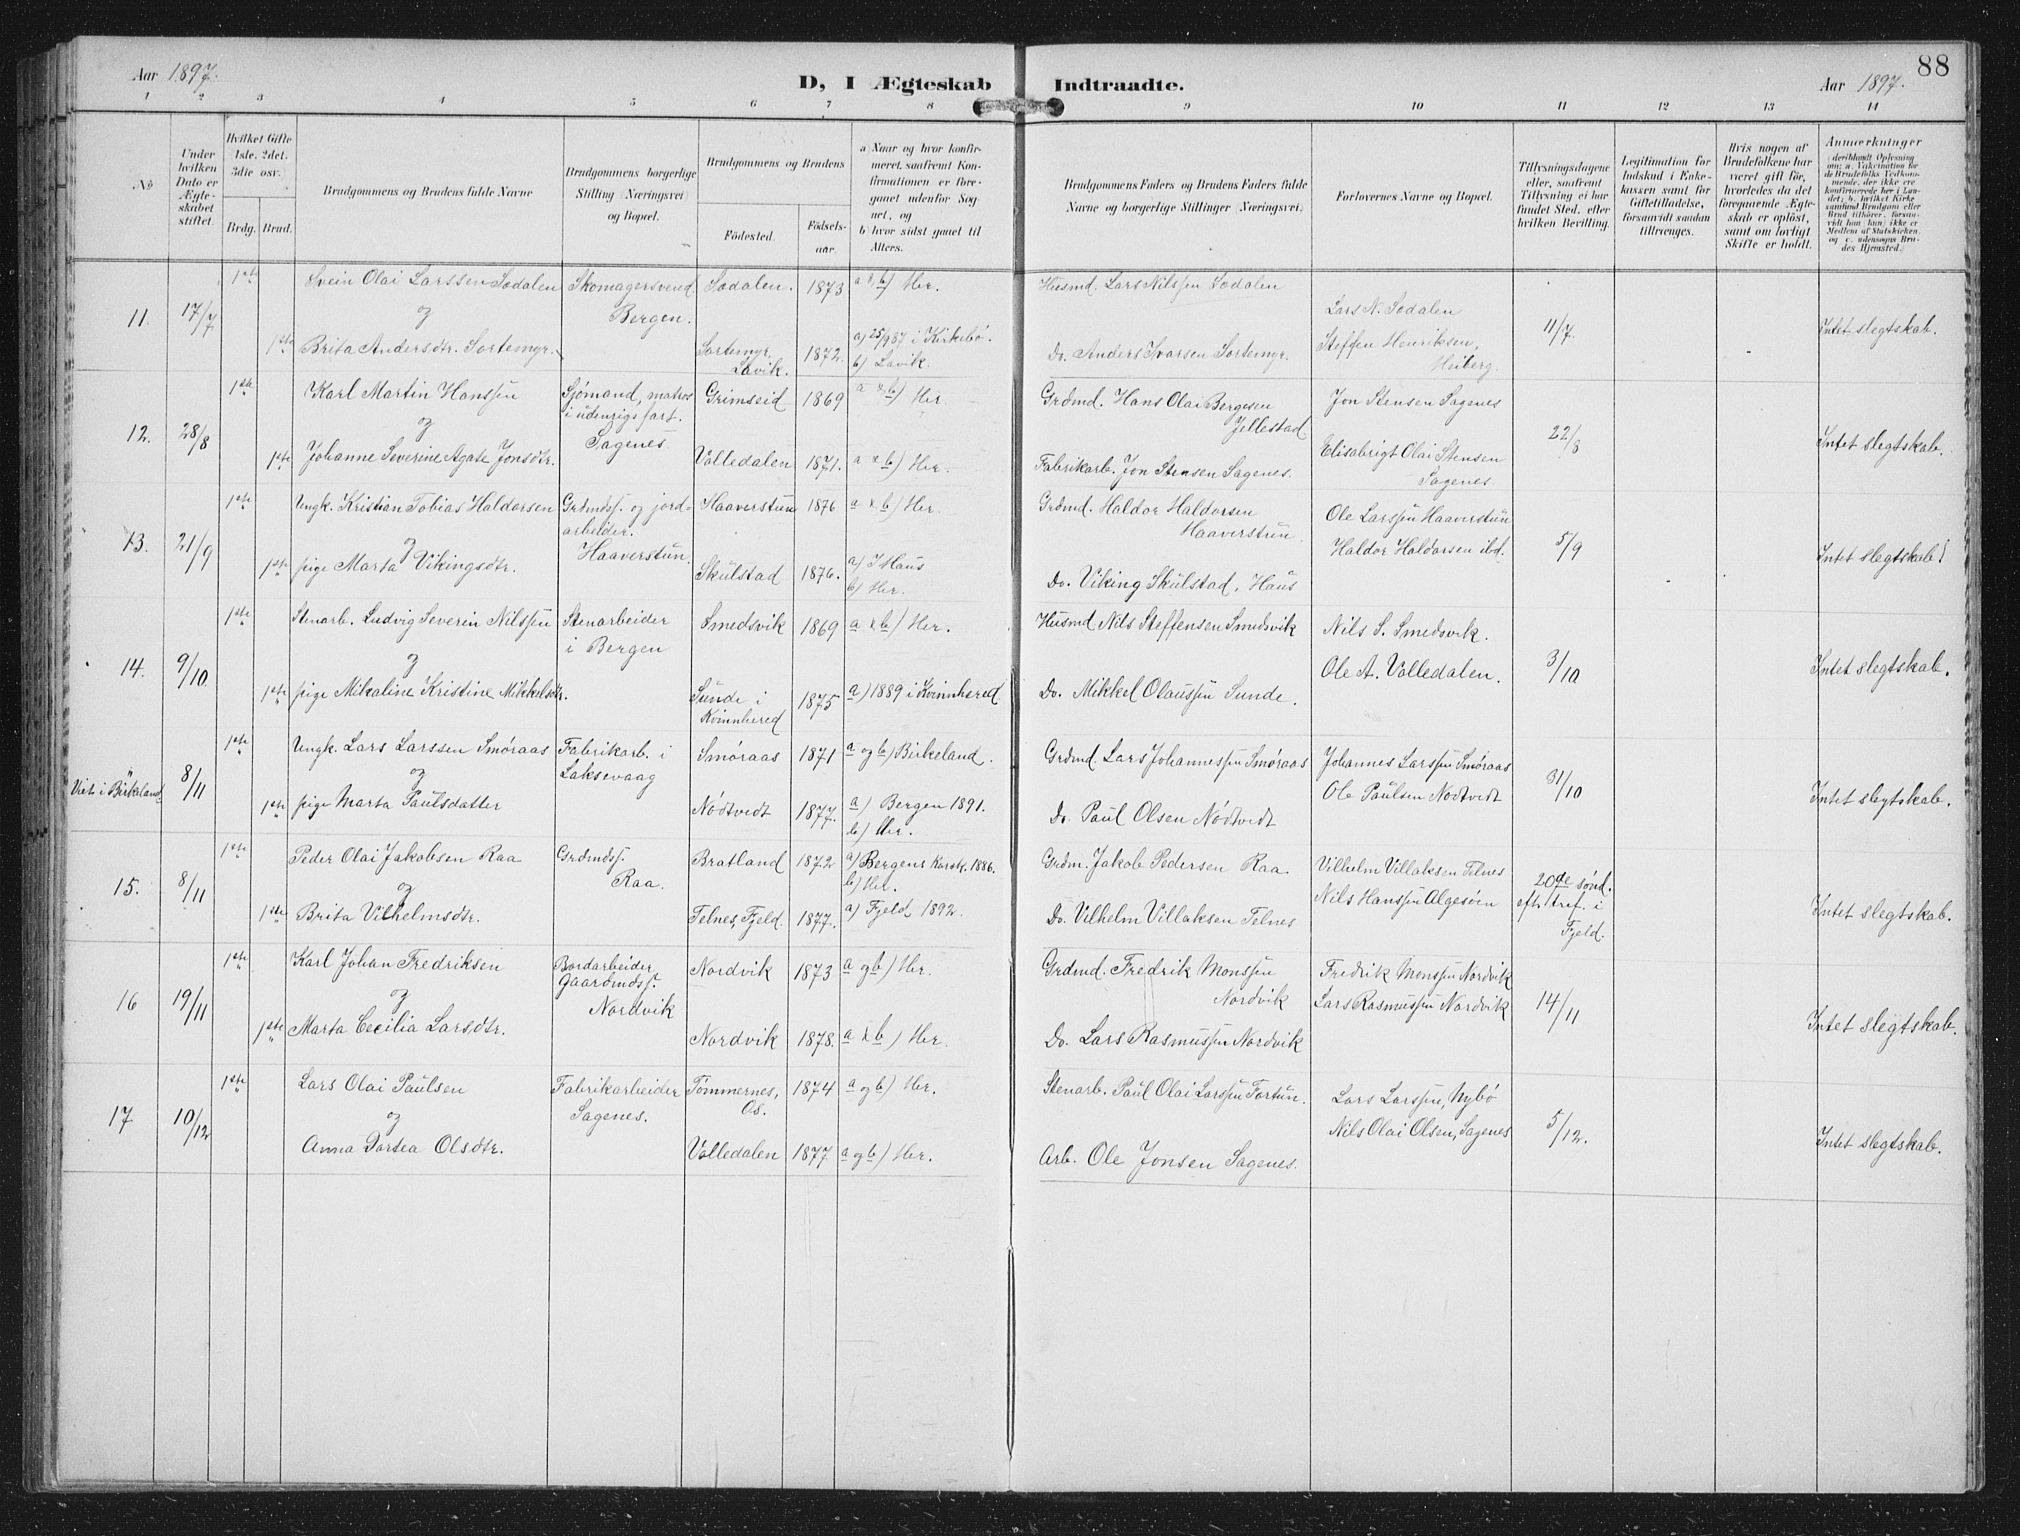 88
Aar 1897.
D, I Ægteskab Indtraadte.
Aar 1897.
1 2 3 4 5 6 7 8 9 10 11 12 13 14
No
Under hvilken Dato er Ægteskabet stiftet
Hvilket Gifte 1ste. 2det. 3die osv.
Brdg. Brud.
Brudgommens og Brudens fulde Navne
Brudgommens borgerlige Stilling (Næringsvei) og Bopæl.
Brudgommens og Brudens
Födested.
Födsels-aar.
a) Naar og hvor konfirmeret, saafremt Konfirmationen er foregaaet udenfor Sognet, og
b) hvor sidst gaaet til Alters.
Brudgommens Faders og Brudens Faders fulde Navne og borgerlige Stillinger (Næringsvei)
Forlovernes Navne og Bopæl.
Tillysningsdagene eller, saafremt Tillysning ei har fundet Sted, efter hvilken Bevilling.
Legitimation for Indskud i Enkekassen samt for Giftetilladelse, forsaavidt saadan tiltrænges.
Hvis nogen af Brudefolkene har været gift för, hvorledes da det foregaaende Ægteskab er oplöst, samt om lovligt Skifte er holdt.
Anmærkninger
(deriblandt Oplysning om: a. Vakcination for de Brudefolks Vedkommende, der ikke ere konfirmerede her i Landet; b. hvilket Kirkesamfund Brudgom eller Brud tilhörer, forsaavidt han (hun) ikke er Medlem af Statskirken, og c. udensogns Brudes Hjemsted.
11. 17/7 1ste Svein Olai Larssen Sødalen Skomagersvend Bergen. Sødalen. 1873 a & b) Her. Husmd. Lars Nilssen Sødalen
og
Lars N. Sødalen 11/7 Intet slegtskab.
1ste Brita Andersdtr. Sortemyr. Sortemyr. Lavik. 1872. a) 25/9 87 i Kirkebø. b) Lavik. Do. Anders Ivarsen Sortemyr. Steffen Henriksen, Heiberg.
12. 28/8 1ste Karl Martin Hanssen Sjømand, matros i udenrigsfart. Sagenes. Grimseid 1869 a & b) Her. Grdmd. Hans Olai Bergesen Jellestad Jon Stensen Sagenes
og
22/8 Intet slegtskab.
1ste Johanne Severine Agate Jonsdtr. Volledalen 1871. a & b) Her. Fabrikarb. Jon Stensen Sagenes. Elisabrigt Olai Stensen Sagenes
13. 21/9 1ste Ungk. Kristian Tobias Haldorsen Grdmdss. og jordarbeider. Haaverstun. Haaverstun 1876 a & b) Her. Grdmd. Haldor Haldorsen Haaverstun Ole Larssen Haaverstun
og
Haldor Haldorsen ibd. 5/9 Intet slegtskab
1ste pige Marta Vikingsdtr. Skulstad 1876. a) I Haus b) Her. Do. Viking Skulstad, Haus
14. 9/10 1ste Stenarb. Ludvig Severin Nilssen Stenarbeider i Bergen Smedsvik 1869 a & b) Her. Husmd Nils Steffensen Smedsvik Nils S. Smedsvik.
og
Ole A. Volledalen. 3/10 Intet slegtskab.
1ste pige Mikaline Kristine Mikkelsdtr. Sunde i Kvinnhered 1875 a) 1889 i Kvinnhered Do. Mikkel Olaussen Sunde.
Viet i Birkeland. 8/11 1ste Ungk. Lars Larssen Smøraas Fabrikarb. i Laksevaag Smøraas 1871 a og b) Birkeland. Grdmd. Lars Johannessen Smøraas Johannes Larssen Smøraas
og
Ole Paulsen Nødtvedt 31/10 Intet slegtskab.
1ste pige Marta Paulsdatter Nødtvedt 1877. a) Bergen 1891. b) Her. Do. Paul Olsen Nødtvedt
15. 8/11 1ste Peder Olai Jakobsen Raa Grdmdss. Raa. Bratland 1872 a) Bergens Korsk. 1886. b) Her. Grdm. Jakob Pedersen Raa. Vilhelm Villaksen Telnes
og
Nils Hanssen Algesøen 20de sønd. eft. tref. i Fjeld. Intet slegtskab.
1ste Brita Vilhelmsdtr. Telnes, Fjeld. 1877. a) Fjeld 1892. Do. Vilhelm Villaksen Telnes
16 19/11 1ste Karl Johan Fredriksen Bordarbeider, Gaardmdss. Nordvik Nordvik 1873 a og b) Her. Grdmd. Fredrik Monssen Nordvik Fredrik Monssen Nordvik
og
Lars Rasmussen Nordvik 14/11 Intet slegtskab.
1ste Marta Cecilia Larsdtr. Nordvik 1878. a & b) Her. Do. Lars Rasmussen Nordvik
17 10/12 1ste Lars Olai Paulsen Fabrikarbeider Sagenes. Tømmernes, Os. 1874 a og b) Her. Stenarb. Paul Olai Larssen Fortun. Lars Larssen, Nybø
og
Nils Olai Olsen, Sagenes 5/12. Intet slegtskab.
Anna Dortea Olsdtr. Volledalen 1877 a og b) Her. Arb. Ole Jonsen Sagenes.